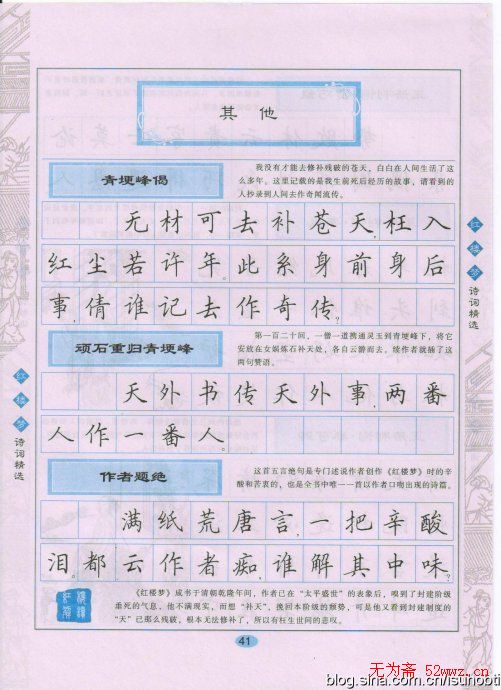 其他
青埂峰偈
我没有才能去修补残破的苍天，白白在人间生活了这
么多年。这里记载的是我生前死后经历的故事，请看到的
人抄录到人间去作奇闻流传。
无材可去补苍天，枉入
红尘若许年。此系身前身后
事，倩谁记去作奇传。
顽石重归青埂峰
第一百二十回，一僧一道携通灵玉到青埂峰下，将它
安放在女娲炼石补天处，各自云游而去。续作者就插了这
两句赞语。
天外书传天外事，两番
人作一番人。
作者题绝
这首五言绝句是专门述说作者创作《红楼梦》时的辛
酸和苦衷的，也是全书中唯一一首以作者口吻出现的诗篇。
满纸荒唐言，一把辛酸
泪。都云作者痴，谁解其中味。
《红楼梦》成书于清朝乾隆年间，作者已在“太平盛世”的表象后，嗅到了封建阶级
垂死的气息，他不满现实，而想“补天”，挽回本阶级的颓势，可是他又看到封建制度的
“天”已那么残破，根本无法修补了，所以有枉生世间的悲叹。
41
红楼梦
诗词精选
红楼梦
诗词精选
无为斋 52wwz.cn
blog.sina.com.cn/isunobti